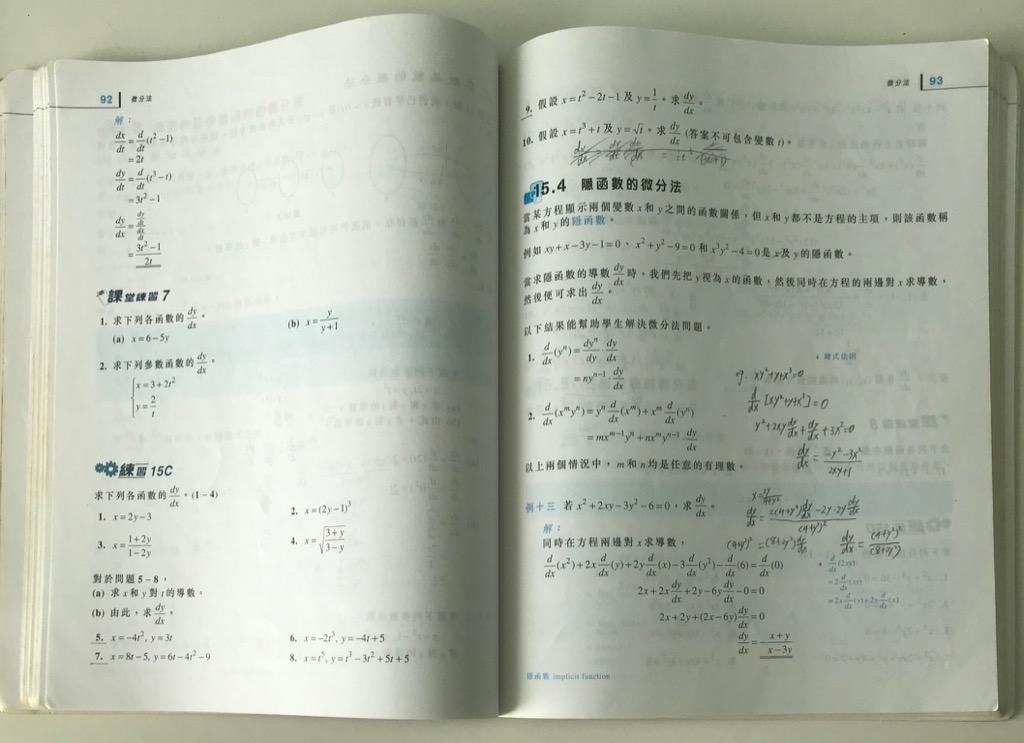 92 微分法
解:
dx/dt = d/dt(t²−1)
=2t
dy/dt = d/dt(t³−t)
=3t²−1
dy/dx = (dy/dt)/(dx/dt)
= (3t²−1)/2t
課堂練習 7
1. 求下列各函數的 dy/dx。
(a) x=6−5y (b) x= y/(y+1)
2. 求下列參數函數的 dy/dx。
{x=3+2t²
y=2/t
練習 15C
求下列各函數的 dy/dx。(1−4)
1. x=2y−3 2. x=(2y−1)³
3. x= (1+2y)/(1−2y) 4. x=√((3+y)/(3−y))
對於問題 5−8,
(a) 求 x 和 y 對 t 的導數。
(b) 由此,求 dy/dx。
5. x=−4t², y=3t 6. x=−2t³, y=−4t+5
7. x=8t−5, y=6t−4t²−9 8. x=t⁵, y=t³−3t²+5t+5
微分法 93
9. 假設 x=t²−2t−1 及 y=1/t。求 dy/dx。
10. 假設 x=t³+t 及 y=√t。求 dy/dx (答案不可包含變數 t)。
15.4 隱函數的微分法
當某方程顯示兩個變數 x 和 y 之間的函數關係,但 x 和 y 都不是方程的主項,則該函數稱
為 x 和 y 的隱函數。
例如 xy+x−3y−1=0、x²+y²−9=0 和 x³y²−4=0 是 x 及 y 的隱函數。
當求隱函數的導數 dy/dx 時,我們先把 y 視為 x 的函數,然後同時在方程的兩邊對 x 求導數,
然後便可求出 dy/dx。
以下結果能幫助學生解決微分法問題。
1. d/dx(yⁿ)= dyⁿ/dy · dy/dx
=nyⁿ⁻¹ · dy/dx
鏈式法則
2. d/dx(xᵐyⁿ)=yⁿ d/dx(xᵐ)+xᵐ d/dx(yⁿ)
=mxᵐ⁻¹yⁿ+nxᵐyⁿ⁻¹ · dy/dx
以上兩個情況中,m 和 n 均是任意的有理數。
9. xy²+y+x³=0
d/dx [xy²+y+x³]=0
y²+2xy dy/dx + dy/dx +3x²=0
dy/dx = (−y²−3x²)/(2xy+1)
例十三 若 x²+2xy−3y²−6=0,求 dy/dx。
解:
同時在方程兩邊對 x 求導數,
d/dx(x²)+2x d/dx(y)+2y d/dx(x)−3 d/dx(y²)− d/dx(6)= d/dx(0)
2x+2x dy/dx +2y−6y dy/dx −0=0
2x+2y+(2x−6y) dy/dx =0
dy/dx =− (x+y)/(x−3y)
d/dx(2xy)
=2 d/dx(xy)
=2x d/dx(y)+2y d/dx(x)
隱函數 implicit function